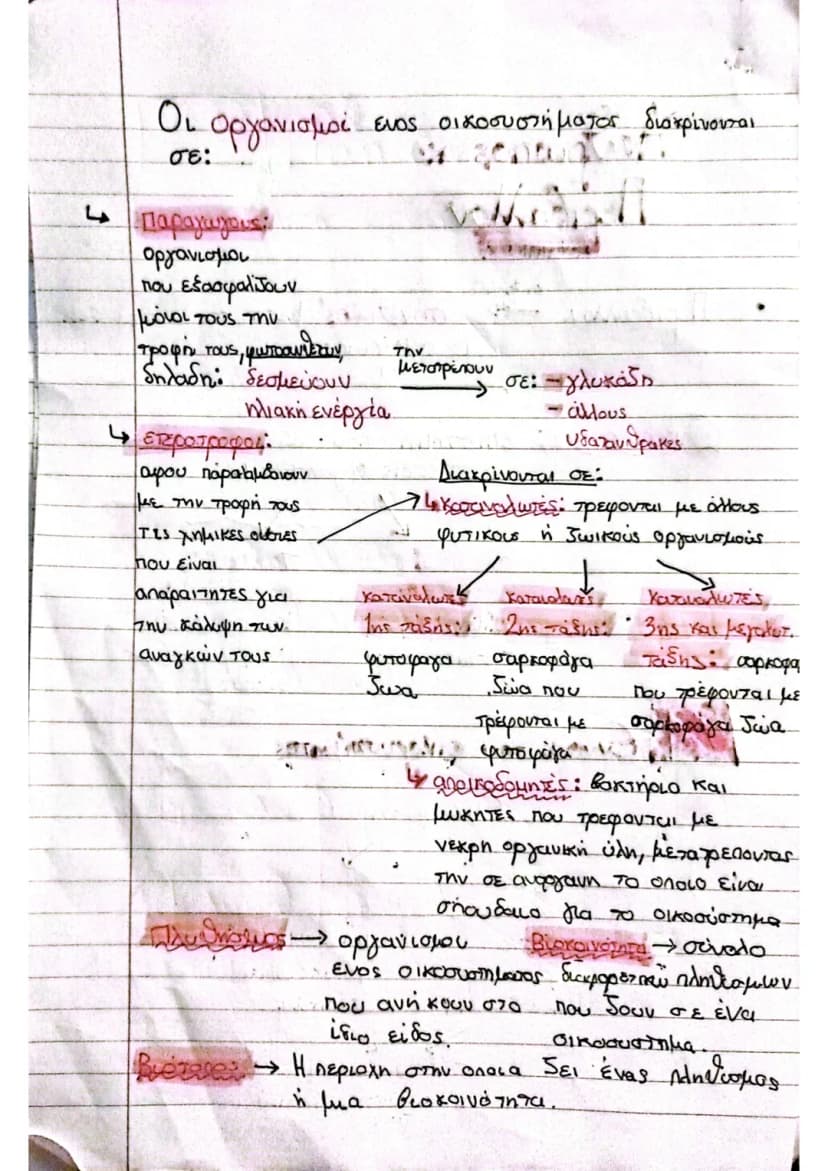 Οι οργανισμοί ενος οικοσυστήματος διακρίνονται
σε:
Παραγωγους:
οργανισμοι
που εξασφαλίζουν
μόνοι τους την
τροφή τους, φωτοσυνθέτουν,
δηλαδή: δεσμεύουν
ηλιακή ενέργεία
την
μετατρέπουν
σε: - γλυκόζη
- άλλους
υδατανθρακες
ετεροτροφοι:
αφου παραλαμβάνουν
με την τροφή τους
τις χημικες ουσίες
που είναι
απαραιτητες για
την κάλυψη των
αναγκών τους
Διακρίνονται σε:
καταναλωτές: τρέφονται με άλλους
φυτικους ή ζωικούς οργανισμούς
καταναλωτές
1ης τάξης:
φυτοφαγα
ζωα
καταναλωτές
2ης τάξης:
σαρκοφάγα
ζώα που
τρέφονται με
φυτοφάγα
Καταναλωτές
3ης και μεγαλυτ.
τάξης: σαρκοφα
που τρέφονται με
σαρκοφάγα ζώα
αποικοδομητές: βακτήρια και
μυκητες που τρεφονται με
νεκρη οργανική ύλη, μετατρεποντας
την σε ανοργανη το οποιο είναι
σπουδαιο για το οικοσύστημα
Πληθυσμος → οργανισμοι
ενος οικοσυστηματος
που ανήκουν στο
ίδιο είδος.
Βιοκοινότητα → σύνολο
διαφορετικών πληθυσμων
που ζουν σε ένα
οικοσυστημα.
Βιότοπος → Η περιοχη στην οποια ζει ένας πληθυσμος
ή μια βιοκοινότητα.